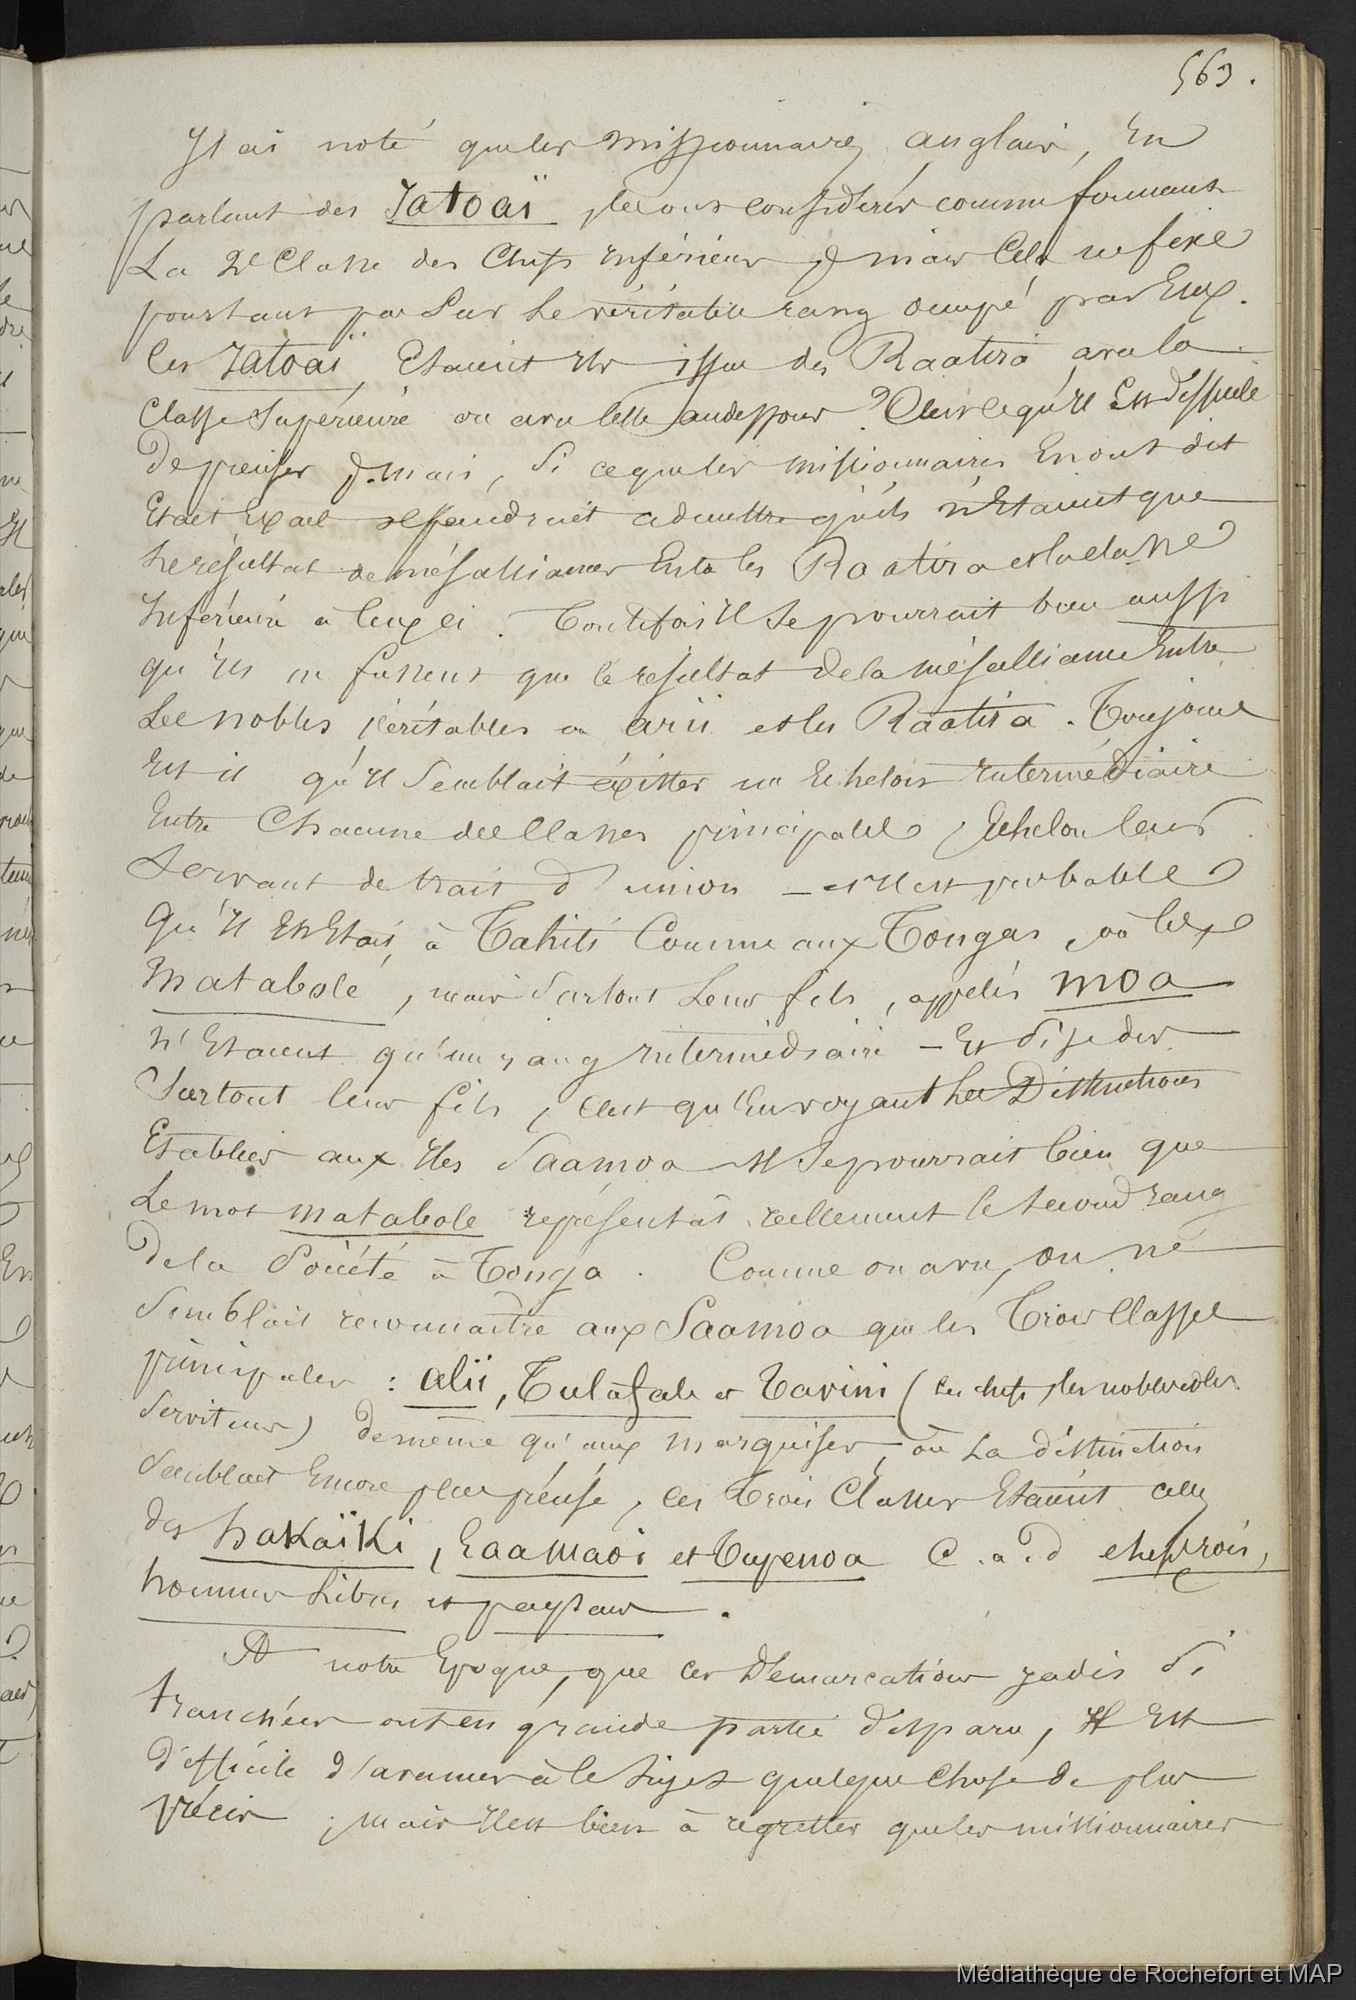 563.
Il ai noté que les missionnaires anglais, en
parlant des Iatoaï, les ont considérés comme formant
La 2e Classe des Chefs inférieurs ; mais Cela ne fixe
pourtant pas Sur le véritable rang occupé par Eux.
Ces Iatoaï, Etaient ils issus des Raatira avec la
Classe Supérieure ou avec celle au dessous ? C'est ce qu'il Est difficile
De préciser ; mais, Si ce que les missionnaires En ont dit
Etait Exact il faudrait admettre qu'ils n'Etaient que
Le résultat de mésalliances Entre les Raatira et la classe
Inférieure à Ceux ci. Toutefois Il Se pourrait bien aussi
qu'ils ne fussent que le résultat de la mésalliance Entre
Les nobles véritables ou arii et les Raatira. Toujours
Est il qu'il Semblait éxister un Echelon Intermédiaire
Entre Chacune des Classes principales, Echelon leur
Servant de trait d'union – et Il est probable
Qu'il En Etait, à Tahiti Comme aux Tongas, où les
Matabolé, mais Surtout Leurs fils, appelés moa
n'Etaient qu'un rang Intermédiaire – Et Si je dis
Surtout leurs fils, c'est qu'En voyant Les Distinctions
Etablies aux Iles Saamoa Il Se pourrait bien que
Le mot matabole représentât réellement le Second rang
De la Société à Tonga. Comme on a vu, on ne
Semblait reconnaître aux Saamoa que les Trois Classes
principales : alii, Tulafale et Tavini (les chefs, les nobles et les
Serviteurs) de même qu'aux Marquises, où La distinction
Semblait Encore plus précise, ces Trois Classes Etaient celles
des hakaïki, Eaamaoi et Tupenoa C.a.d chefs, rois,
hommes libres et paysans.
A notre Epoque, que ces Démarcations jadis Si
tranchées ont en grande partie disparu, Il Est
difficile d'avancer à ce Sujet quelque Chose de plus
précis ; mais Il est bien à regretter que les missionnaires
Médiathèque de Rochefort et MAP